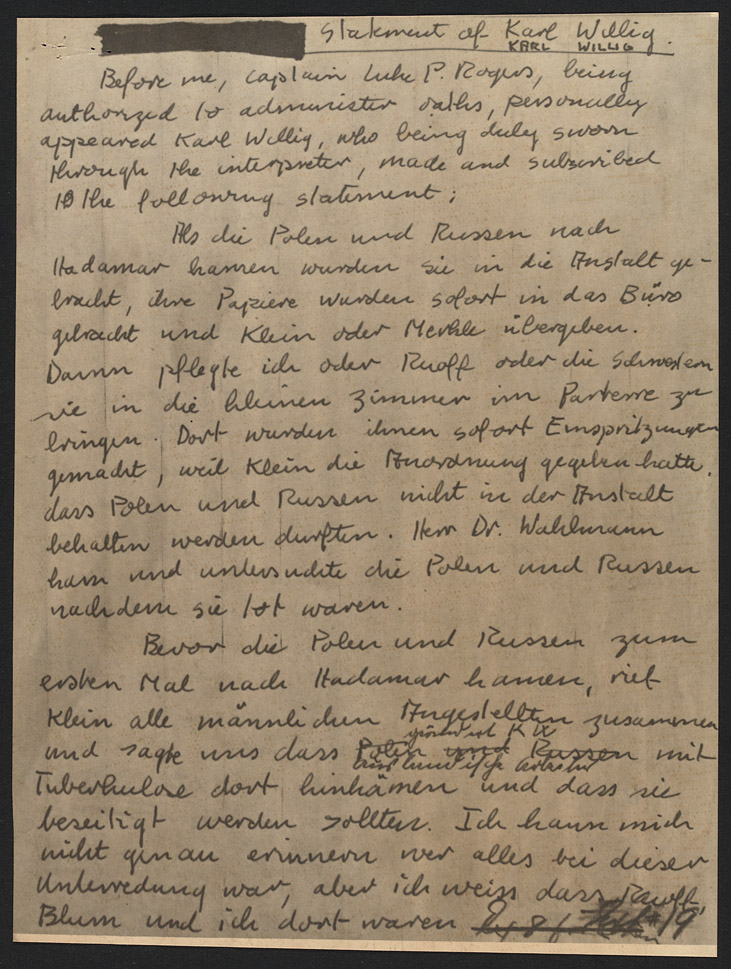 Statement of Karl Willig.
KARL WILLIG
Before me, Captain Luke P. Rogers, being
authorized to administer oaths, personally
appeared Karl Willig, who being duly sworn
through the interpreter, made and subscribed
to the following statement;
Als die Polen und Russen nach
Hadamar kamen wurden sie in die Anstalt ge-
bracht, ihre Papiere wurden sofort in das Büro
gebracht und Klein oder Merkle übergeben.
Dann pflegte ich oder Ruoff oder die Schwestern
sie in die kleinen Zimmer im Parterre zu
bringen. Dort wurden ihnen sofort Einspritzungen
gemacht, weil Klein die Anordnung gegeben hatte,
dass Polen und Russen nicht in der Anstalt
behalten werden durften. Herr Dr. Wahlmann
kam und untersuchte die Polen und Russen
nachdem sie tot waren.
Bevor die Polen und Russen zum
ersten Mal nach Hadamar kamen, rief
Klein alle männlichen Angestellten zusammen
und sagte uns dass Polen und Russen mit
ausländische Arbeiter
Tuberkulose dort hinkämen und dass sie
beseitigt werden sollten. Ich kann mich
nicht genau erinnern wer alles bei dieser
Unterredung war, aber ich weiss dass Ruoff,
Blum und ich dort waren